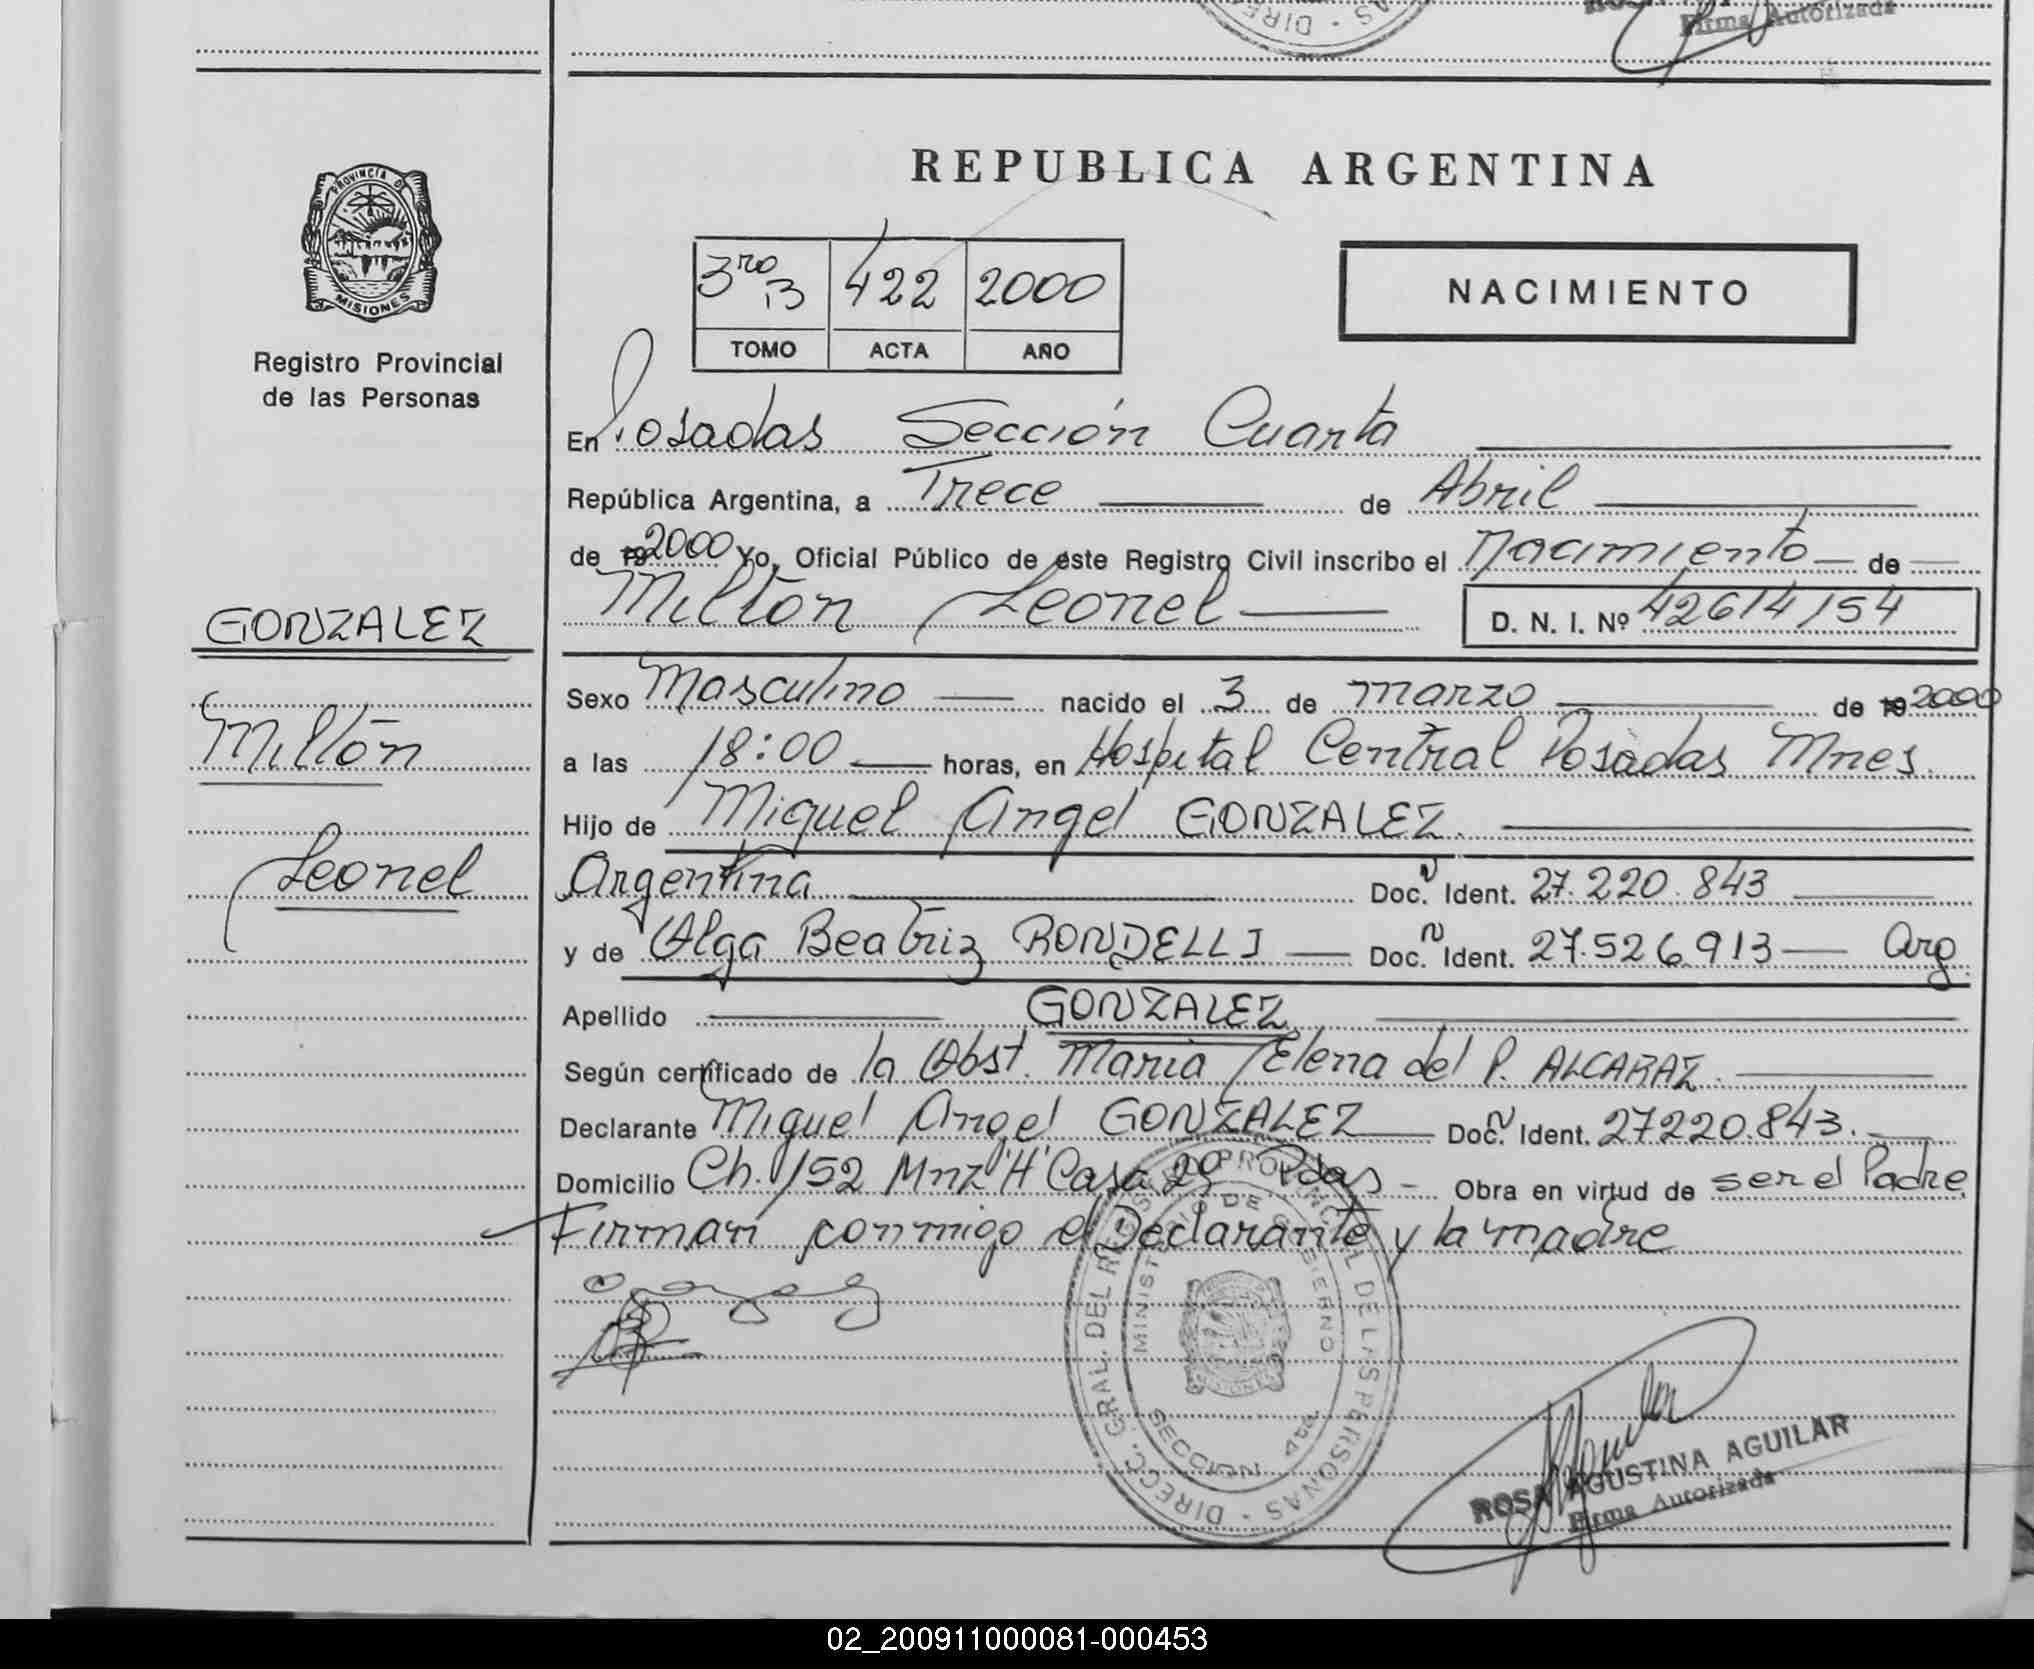 Firma Autorizada
PROVINCIA DE
MISIONES
Registro Provincial
de las Personas
GONZALEZ
Milton
Leonel
REPUBLICA ARGENTINA
3ro B 422 2000
TOMO ACTA AÑO
NACIMIENTO
En Posadas Sección Cuarta
República Argentina, a Trece de Abril
de 19 2000 Yo, Oficial Público de este Registro Civil inscribo el Nacimiento de
Milton Leonel D. N. I. Nº 42614154
Sexo Masculino nacido el 3 de marzo de 19 2000
a las 18:00 horas, en Hospital Central Posadas Mnes.
Hijo de Miguel Angel GONZALEZ.
Argentina Doc. N Ident. 27.220.843
y de Olga Beatriz RONDELLI Doc. N Ident. 27.526.913 Arg
Apellido GONZALEZ
Según certificado de la Obst. Maria Elena del P. ALCARAZ.
Declarante Miguel Angel GONZALEZ Doc. N Ident. 27220.843.
Domicilio Ch. 152 Mnz "H" Casa 29 Pdas - Obra en virtud de ser el Padre
Firman conmigo el Declarante y la madre
DIRECC. GRAL. DEL REGISTRO PROVINCIAL DE LAS PERSONAS
MINISTERIO DE GOBIERNO
SECCION 4ta
MISIONES
ROSA AGUSTINA AGUILAR
Firma Autorizada
02_200911000081-000453